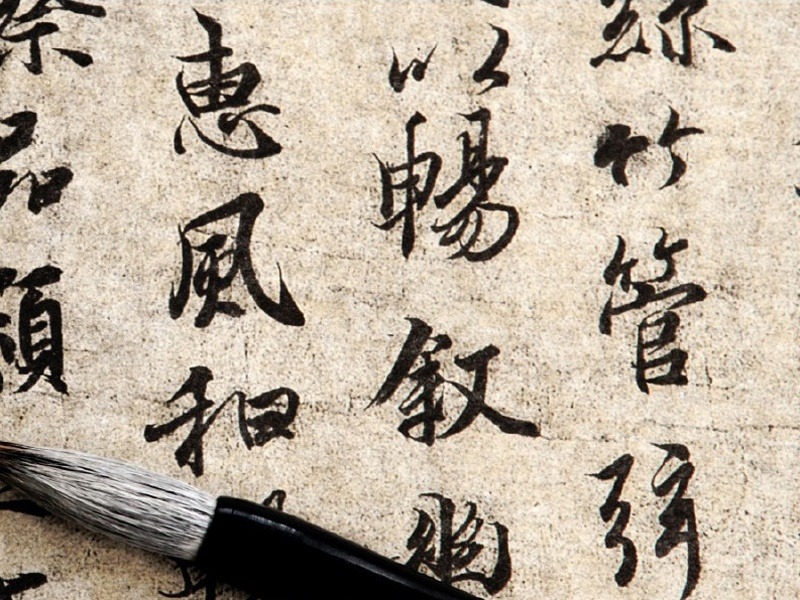 絲竹管弦
以暢叙幽
惠風和
察品類